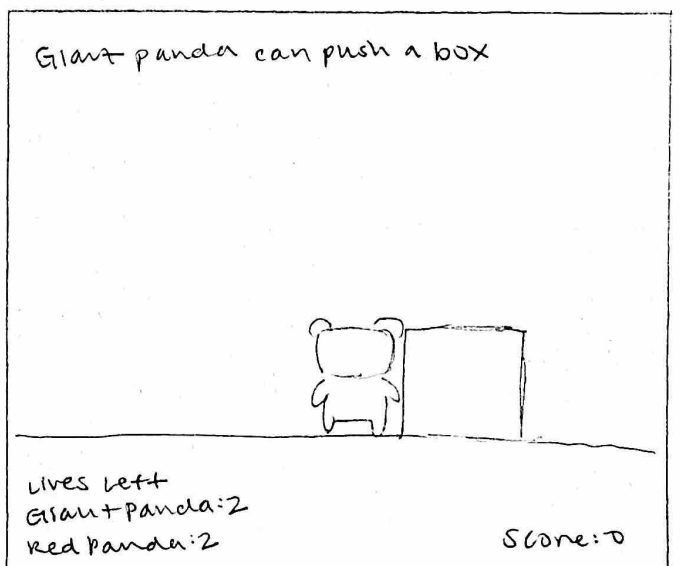 Giant panda can push a box
Lives Left
Giant Panda:2
Red Panda:2
Score:0